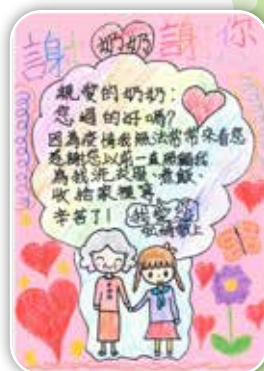 謝 奶奶 謝 你
親愛的奶奶：
您過的好嗎？
因為疫情我無法常常來看您
感謝您以前一直照顧我
為我洗衣服、煮飯、
收拾家裡等
辛苦了！ 我愛您
敬上